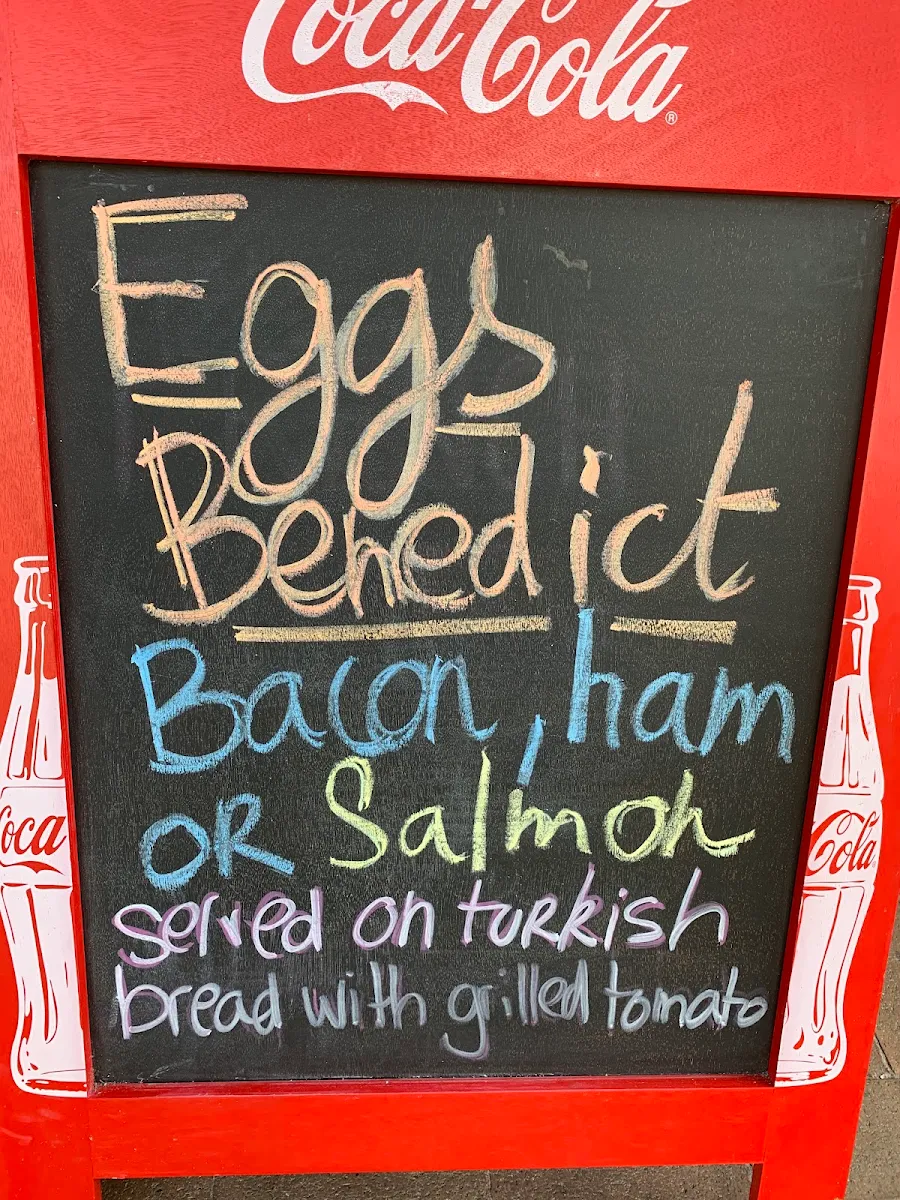 Coca-Cola®
Eggs
Benedict
Bacon, ham
OR Salmon
served on turkish
bread with grilled tomato
Coca
Cola